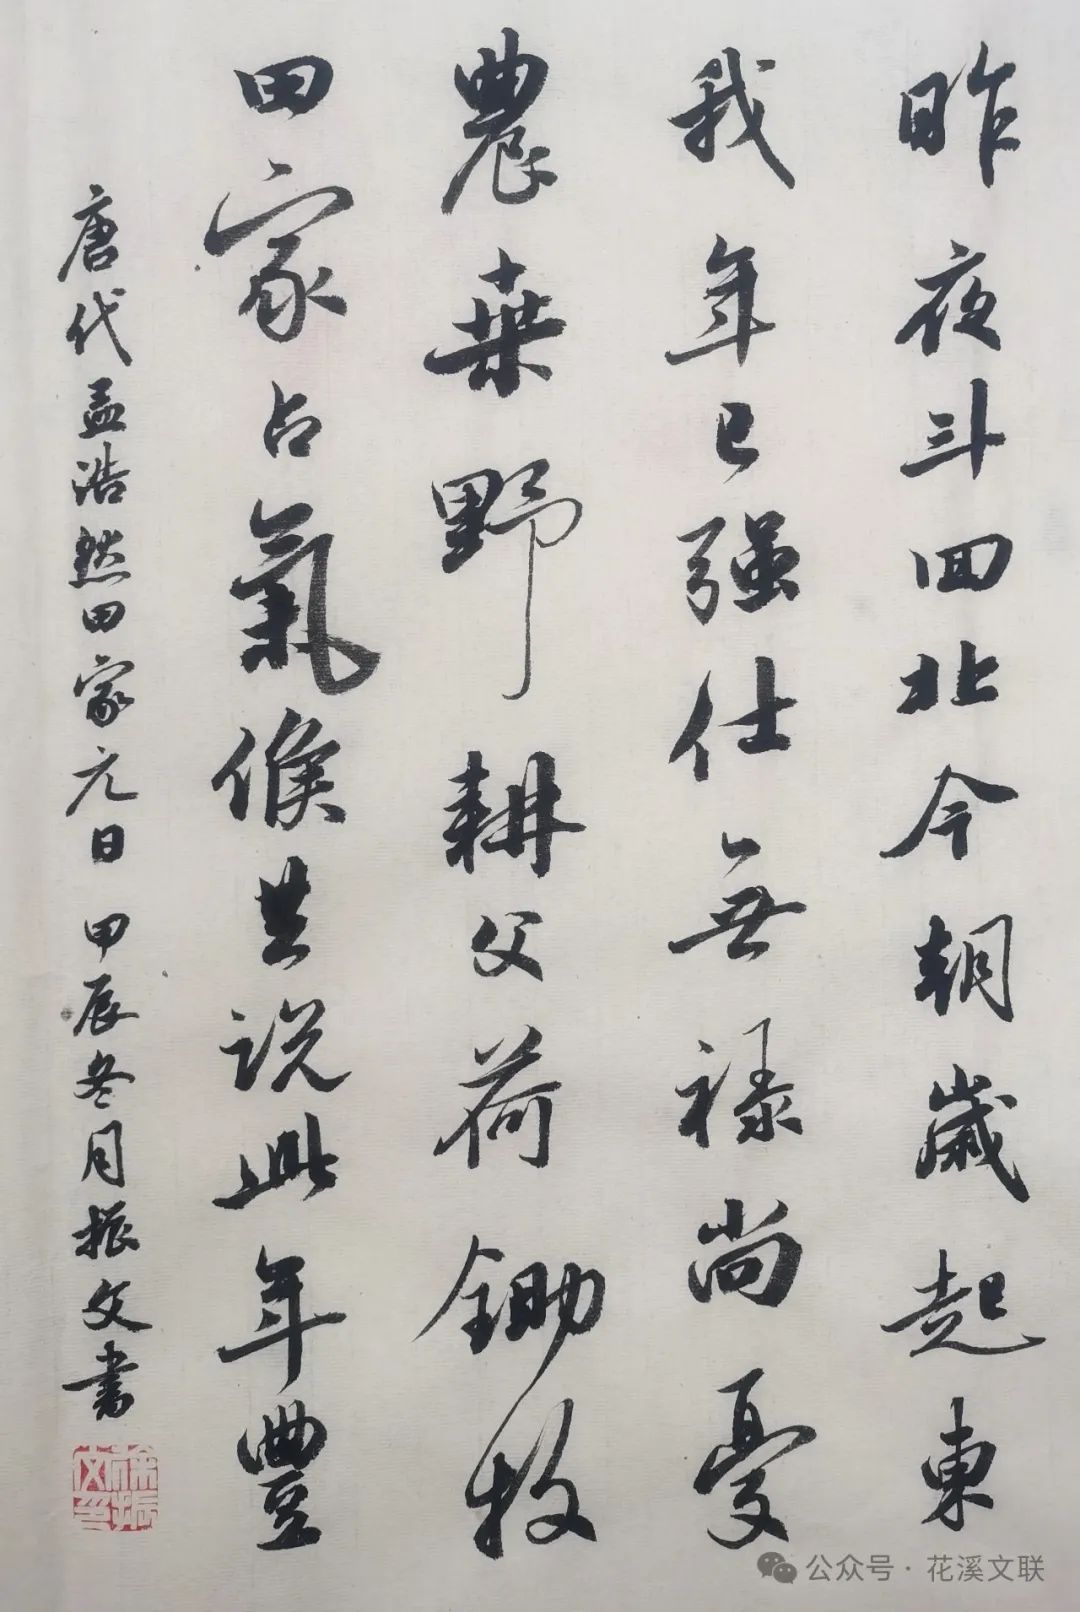 昨夜斗回北今朝歲起東
我年已强仕無禄尚憂
農桒野耕父荷鋤牧
田家占氣候共説此年豐
唐代孟浩然田家元日 甲辰冬月振文書
公众号·花溪文联